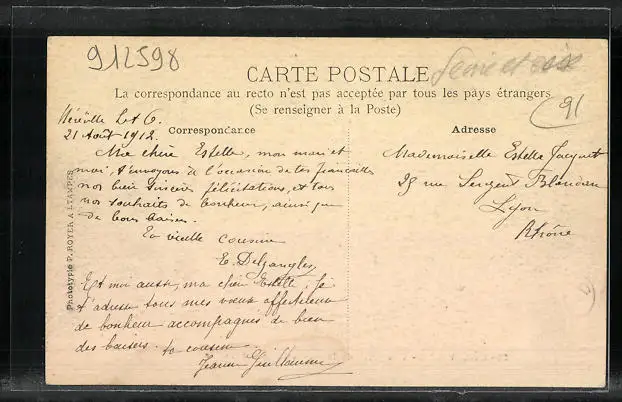 912598
Seine et oise
CARTE POSTALE
La correspondance au recto n'est pas acceptée par tous les pays étrangers
(Se renseigner à la Poste)
91
Méréville S et O.
21 Août 1912.
Correspondance
Ma chère Estelle, mon mari et
moi, t'envoyons à l'occasion de tes fiançailles
nos bien sincères félicitations, et tous
nos souhaits de bonheur, ainsi que
de bons baisers.
Ta vieille cousine
E. Delzangles
Et moi aussi, ma chère Estelle, je
t'adresse tous mes vœux affectueux
de bonheur accompagnés de bien
des baisers. ta cousine
Jeanne Guillaume
Adresse
Mademoiselle Estelle Jacquet
25 rue Sergent Blandan
Lyon
Rhône
Phototypie P. ROYER A ETAMPES